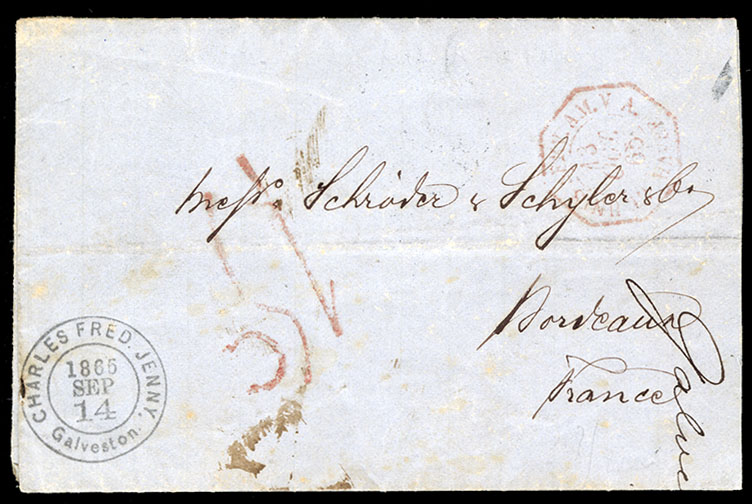 Messrs. Schröder & Schyler & Co
Bordeaux
France
CHARLES FRED. JENNY,
1865
SEP
14
Galveston.